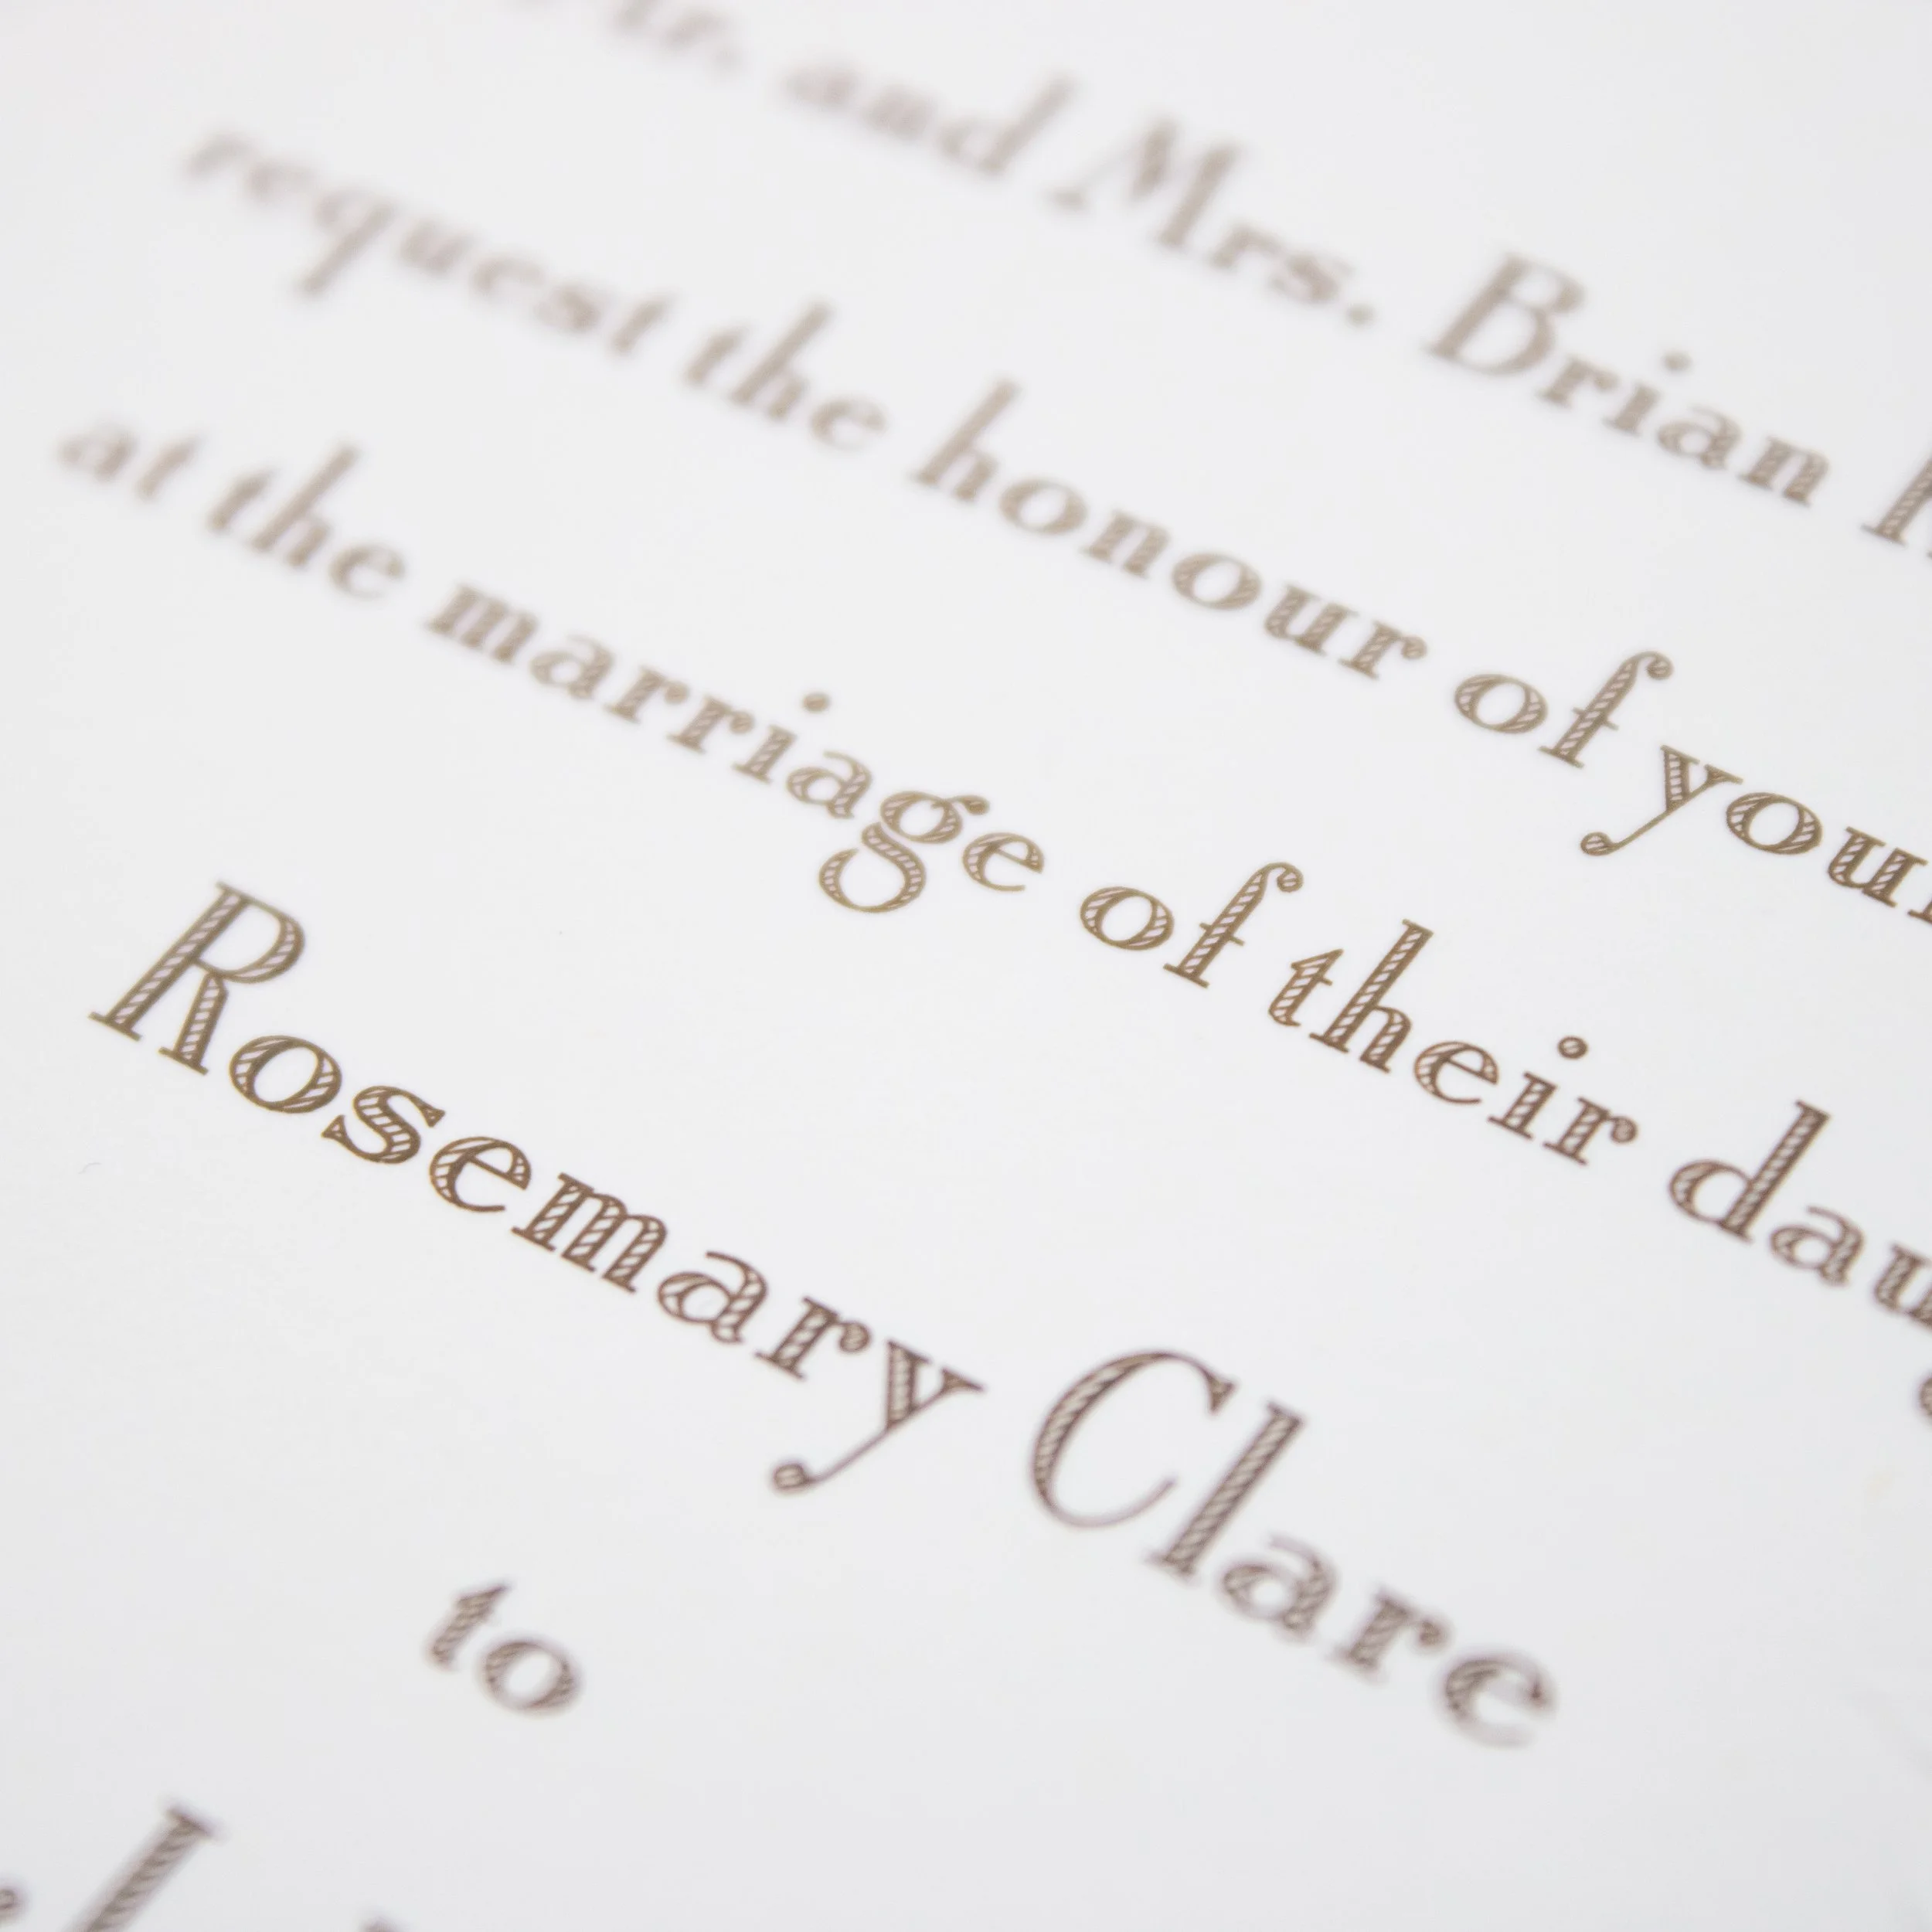 and Mrs. Brian
request the honour of your
at the marriage of their
Rosemary Clare
to